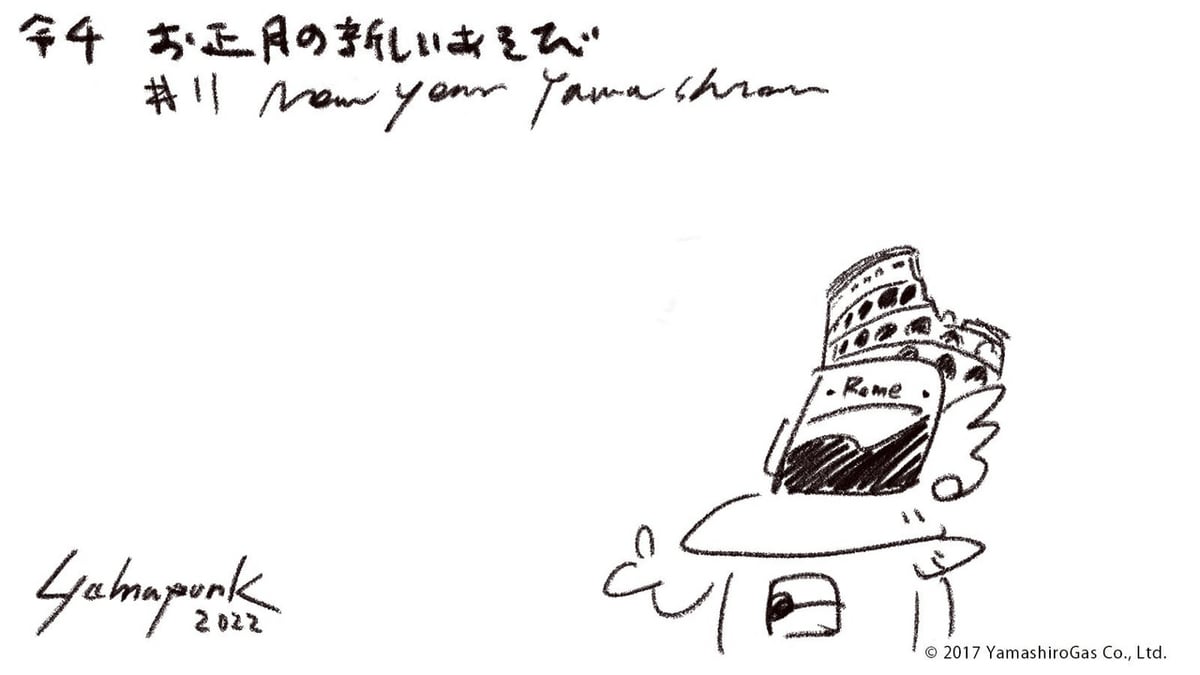 令4 お正月の新しいあそび
#11 New Year Yamashiron
Rome
Yamapunk
2022
© 2017 YamashiroGas Co., Ltd.